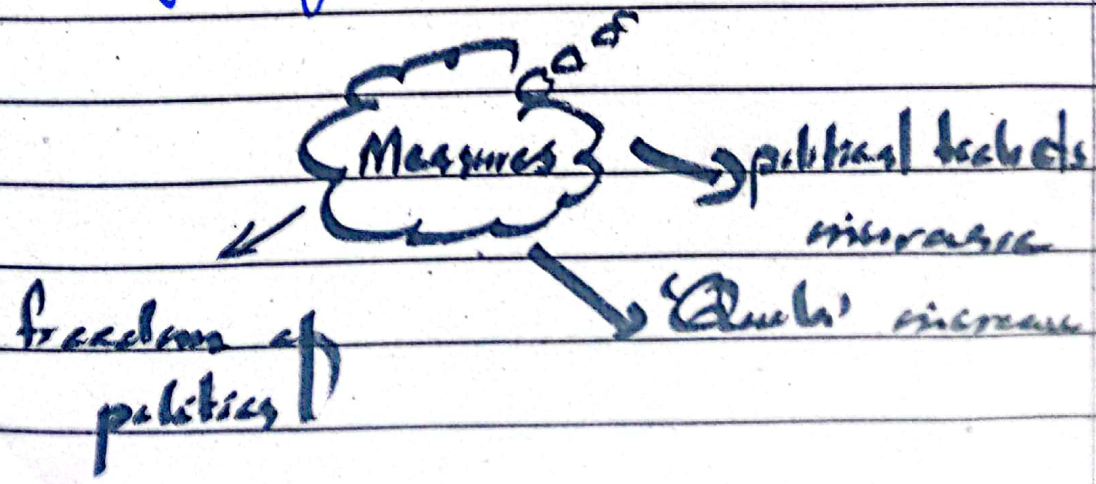 Measures
political tickets
increase
'Quota' increase
freedom of
politics